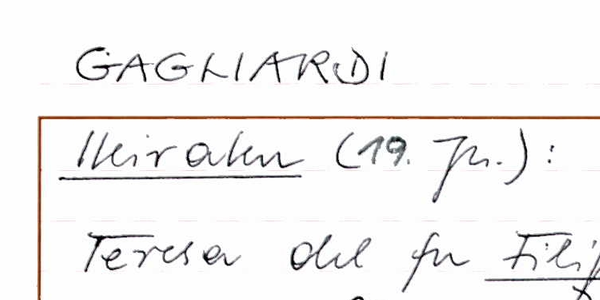 GAGLIARDI
Heiraten (19. Jh.):
Teresa del fu Filip